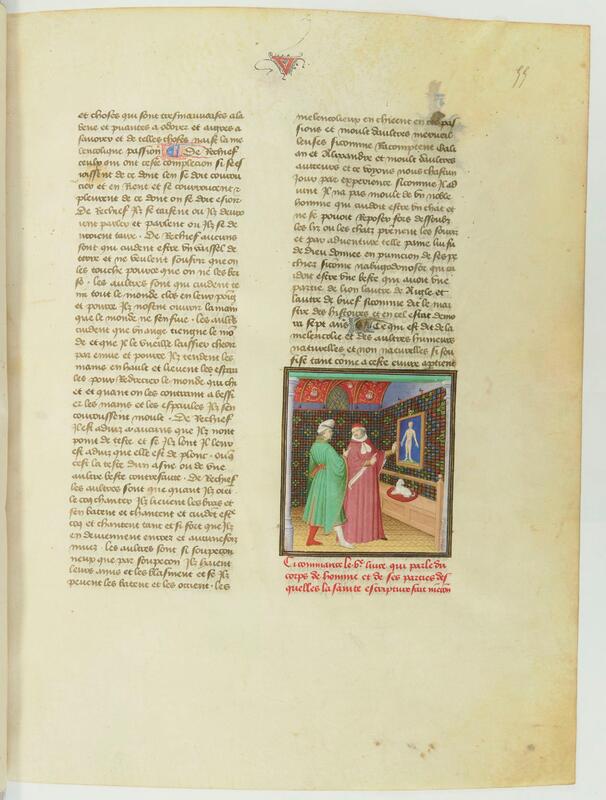 V
55
et choses qui sont tresmauvaises a la
bene et puantes a odorer et aigres a
savorer et de telles choses naist la me
lencolique passion De Rechief
ceulx qui ont ceste complecion si ses
joissent de ce dont len se doit courou
cier et en Rient et se courroucent et
pleurent de ce dont on se doit esioir
De Rechief ilz se taisent ou ilz deus
sent parler et parlent ou ilz se de
vroient taire. De Rechief aucuns
sont qui cuident estre un vaissel de
terre et ne veulent soufrir que on
les touche pource que on ne les bri
se. les aultres sont qui cuident te
nir tout le monde clos en leur poig
et pource ilz nosent ouvrir la main
que le monde ne senfuie. les aultres
cuident que un ange tiengne le mo
de et que il le vueille laissier cheoir
par ennuie et pource ilz tendent les
mains en hault et lieuent les espau
les pour Redrecier le monde qui chi
et et quant on les contraint a besse
er les mains et les espaules ilz sen
courroussent moult. De Rechief
il est advis a aucuns que ilz nont
point de teste et se ilz lont il leur
est advis que elle est de plonc. ou q
cest la teste dun asne ou de une
aultre beste contrefaicte. De Rechief
les aultres sont que quant ilz oient
le coq chanter ilz lieuent les bras et
sen batent et chantent et cuident estre
coq et chantent tant et si fort que ilz
en deviennent enroez et aucunefois
muez. les aultres sont si soupecon
neux que par soupecon ilz haient
leurs amis et les blasment et se ilz
peuent les batent et les occient. les
melencolieux en chieent en ces pas
sions et moult daultres merveil
leuses sicomme Racomptent Gali
an et Alixandre et moult daultres
aucteurs et ce voyons nous chascun
jour par experience sicomme il ad
vint il na pas moult de un noble
homme qui cuidoit estre un chat et
ne se pouoit Reposer fors dessoubz
les liz ou les chatz prennent les souris
et par adventure telle paine lui fu
de dieu donnee en punicion de ses pe
chiez sicome nabugodonosor qui cu
doit estre une beste qui avoit une
partie de lion lautre de Aigle et
lautre de buef sicomme dit le mai
stre des histoires et en cel estat demo
ra sept ans Ce qui est dit de la
melencolie et des aultres humeurs
naturelles et non naturelles si sou
fise tant come a ceste euvre aptient
Ci commance le Ve livre qui parle du
corps de homme et de ses parties des
quelles la sainte escripture fait mencon